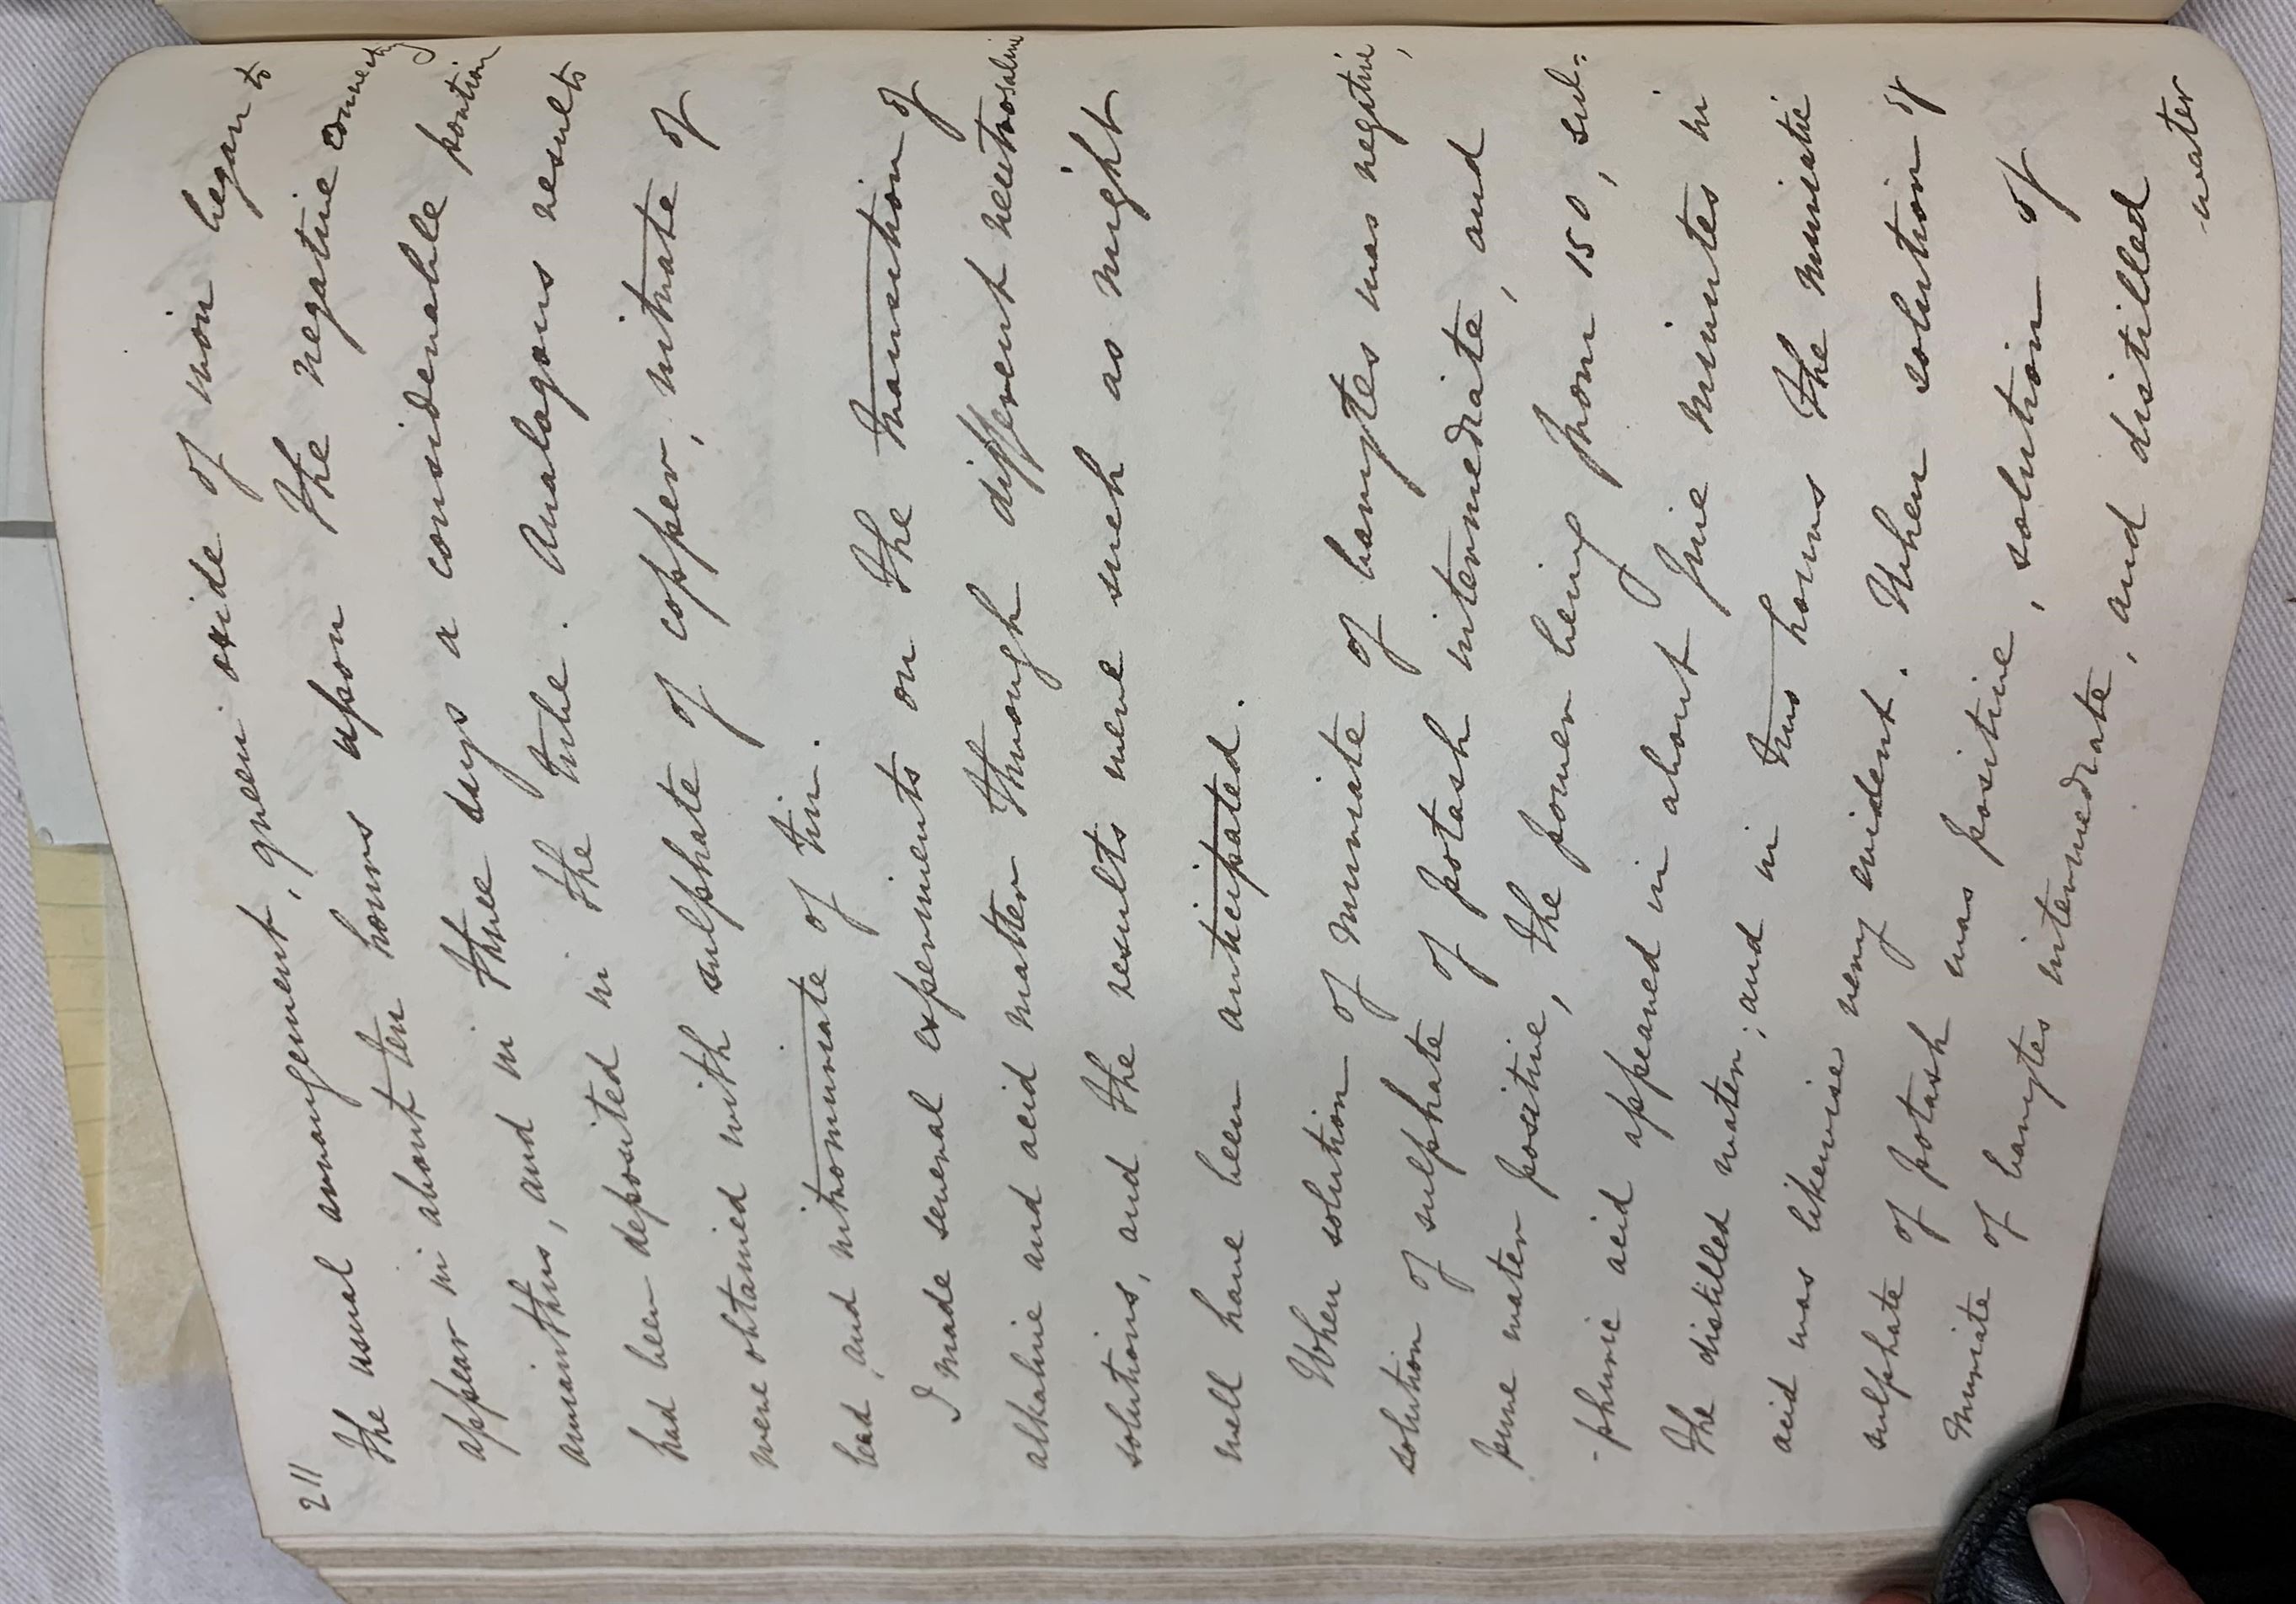 211
the usual arrangement, green oxide of iron began to
appear in about ten hours upon the negative connecting
amianthus, and in three days a considerable portion
had been deposited in the tube. Analogous results
were obtained with sulphate of copper, nitrate of
lead, and nitromuriate of tin.
I made several experiments on the transition of
alkaline and acid matter through different neutrosaline
solutions, and the results were such as might
well have been anticipated.
When solution of muriate of barytes was negative,
solution of sulphate of potash intermediate, and
pure water positive, the power being from 150, sul=
-phuric acid appeared in about five minutes in
the distilled water; and in two hours the muriatic
acid was likewise very evident. When solution of
sulphate of potash was positive, solution of
muriate of barytes intermediate, and distilled
water